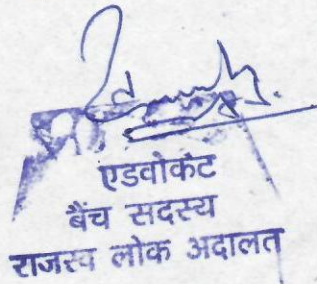 एडवोकेट
बैंच सदस्य
राजस्व लोक अदालत